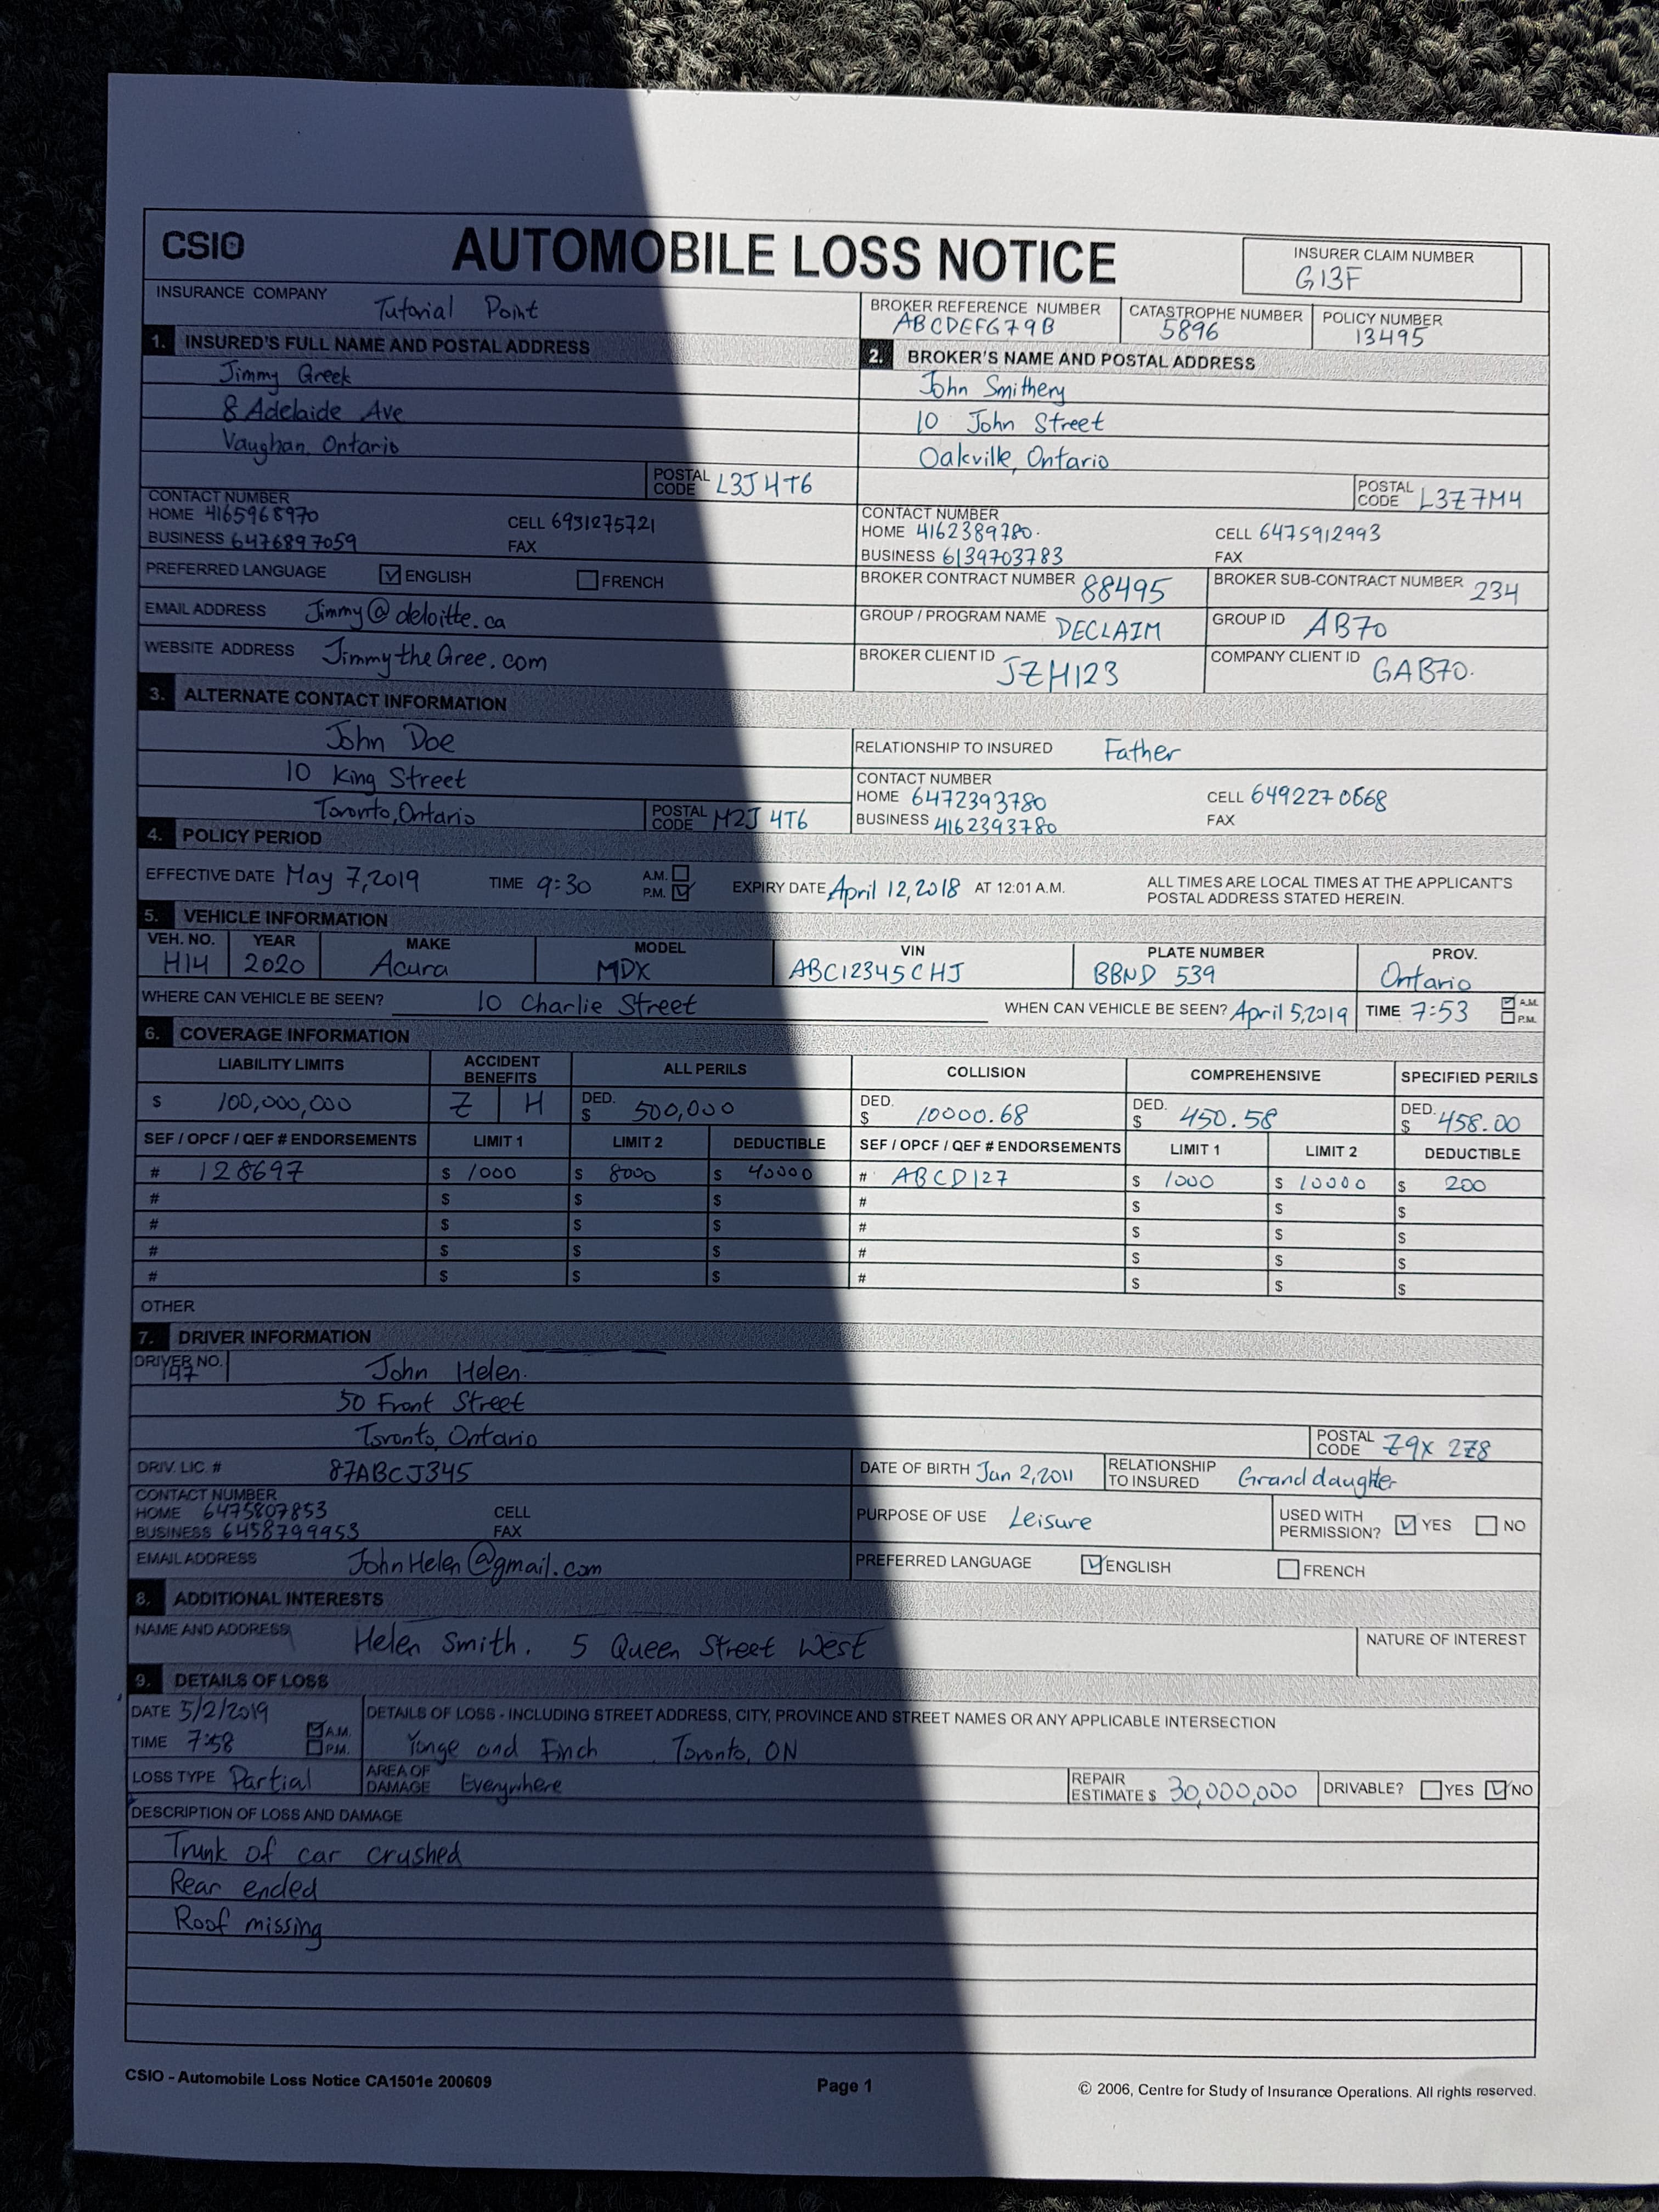 CSIO
AUTOMOBILE LOSS NOTICE
INSURER CLAIM NUMBER
G13F
INSURANCE COMPANY Tutorial Point
BROKER REFERENCE NUMBER ABCDEFG79B
CATASTROPHE NUMBER 5896
POLICY NUMBER 13495
1. INSURED'S FULL NAME AND POSTAL ADDRESS
Jimmy Greek
8 Adelaide Ave
Vaughan, Ontario
POSTAL CODE L3J 4T6
CONTACT NUMBER
HOME 4165968970 CELL 6931275721
BUSINESS 6476897059 FAX
PREFERRED LANGUAGE ENGLISH FRENCH
EMAIL ADDRESS Jimmy@deloitte.ca
WEBSITE ADDRESS JimmytheGree.com
2. BROKER'S NAME AND POSTAL ADDRESS
John Smithery
10 John Street
Oakville, Ontario
POSTAL CODE L3Z7M4
CONTACT NUMBER
HOME 4162389780. CELL 6475912993
BUSINESS 6139703783 FAX
BROKER CONTRACT NUMBER 88495 BROKER SUB-CONTRACT NUMBER 234
GROUP / PROGRAM NAME DECLAIM GROUP ID AB70
BROKER CLIENT ID JZH123 COMPANY CLIENT ID GAB70.
3. ALTERNATE CONTACT INFORMATION
John Doe
10 King Street
Toronto, Ontario
POSTAL CODE M2J 4T6
RELATIONSHIP TO INSURED Father
CONTACT NUMBER
HOME 6472393780 CELL 6492270568
BUSINESS 4162393780 FAX
4. POLICY PERIOD
EFFECTIVE DATE May 7, 2019 TIME 9:30 A.M. P.M. EXPIRY DATE April 12, 2018 AT 12:01 A.M.
ALL TIMES ARE LOCAL TIMES AT THE APPLICANT'S
POSTAL ADDRESS STATED HEREIN.
5. VEHICLE INFORMATION
VEH. NO. YEAR MAKE MODEL VIN PLATE NUMBER PROV.
H14 2020 Acura MDX ABC12345CHJ BBND 539 Ontario
WHERE CAN VEHICLE BE SEEN? 10 Charlie Street WHEN CAN VEHICLE BE SEEN? April 5, 2019 TIME 7:53 A.M. P.M.
6. COVERAGE INFORMATION
LIABILITY LIMITS ACCIDENT BENEFITS ALL PERILS COLLISION COMPREHENSIVE SPECIFIED PERILS
$ 100,000,000 Z H DED. $ 500,000 DED. $ 10000.68 DED. $ 450.58 DED. $ 458.00
SEF / OPCF / QEF # ENDORSEMENTS LIMIT 1 LIMIT 2 DEDUCTIBLE SEF / OPCF / QEF # ENDORSEMENTS LIMIT 1 LIMIT 2 DEDUCTIBLE
# 128697 $ 1000 $ 8000 $ 40000 # ABCD127 $ 1000 $ 10000 $ 200
# $ $ $ # $ $ $
# $ $ $ # $ $ $
# $ $ $ # $ $ $
# $ $ $ # $ $ $
OTHER
7. DRIVER INFORMATION
DRIVER NO. 147 John Helen.
50 Front Street
Toronto, Ontario
POSTAL CODE Z9X 2Z8
DRIV. LIC. # 87ABCJ345
DATE OF BIRTH Jan 2, 2011 RELATIONSHIP TO INSURED Grand daughter
CONTACT NUMBER
HOME 6475807853 CELL
BUSINESS 6458799953 FAX
PURPOSE OF USE Leisure USED WITH PERMISSION? YES NO
EMAIL ADDRESS JohnHelen@gmail.com
PREFERRED LANGUAGE ENGLISH FRENCH
8. ADDITIONAL INTERESTS
NAME AND ADDRESS Helen Smith. 5 Queen Street West NATURE OF INTEREST
9. DETAILS OF LOSS
DATE 5/2/2019
TIME 7:58 A.M. P.M.
DETAILS OF LOSS - INCLUDING STREET ADDRESS, CITY, PROVINCE AND STREET NAMES OR ANY APPLICABLE INTERSECTION
Yonge and Finch Toronto, ON
LOSS TYPE Partial AREA OF DAMAGE Everywhere REPAIR ESTIMATE $ 30,000,000 DRIVABLE? YES NO
DESCRIPTION OF LOSS AND DAMAGE
Trunk of car crushed
Rear ended
Roof missing
CSIO - Automobile Loss Notice CA1501e 200609 Page 1 © 2006, Centre for Study of Insurance Operations. All rights reserved.